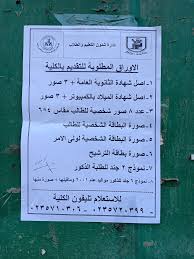 ادارة شئون التعليم والطلاب
الاوراق المطلوبة للتقديم بالكلية
١- اصل شهادة الثانوية العامة + ٣ صور
٢- اصل شهادة الميلاد بالكمبيوتر + ٣ صور
٣- عدد ٨ صور شخصية للطالب مقاس ٤×٦
٤- صورة البطاقة الشخصية للطالب
٥- صورة البطاقة الشخصية لولى الامر
٦- صورة بطاقة الترشيح
٧- نموذج ٢ جند للطلبة الذكور
للاستعلام تليفون الكلية
٠٢٣٥٧١٠٣٠٦ - ٠٢٣٥٧٢٠٣٩٩